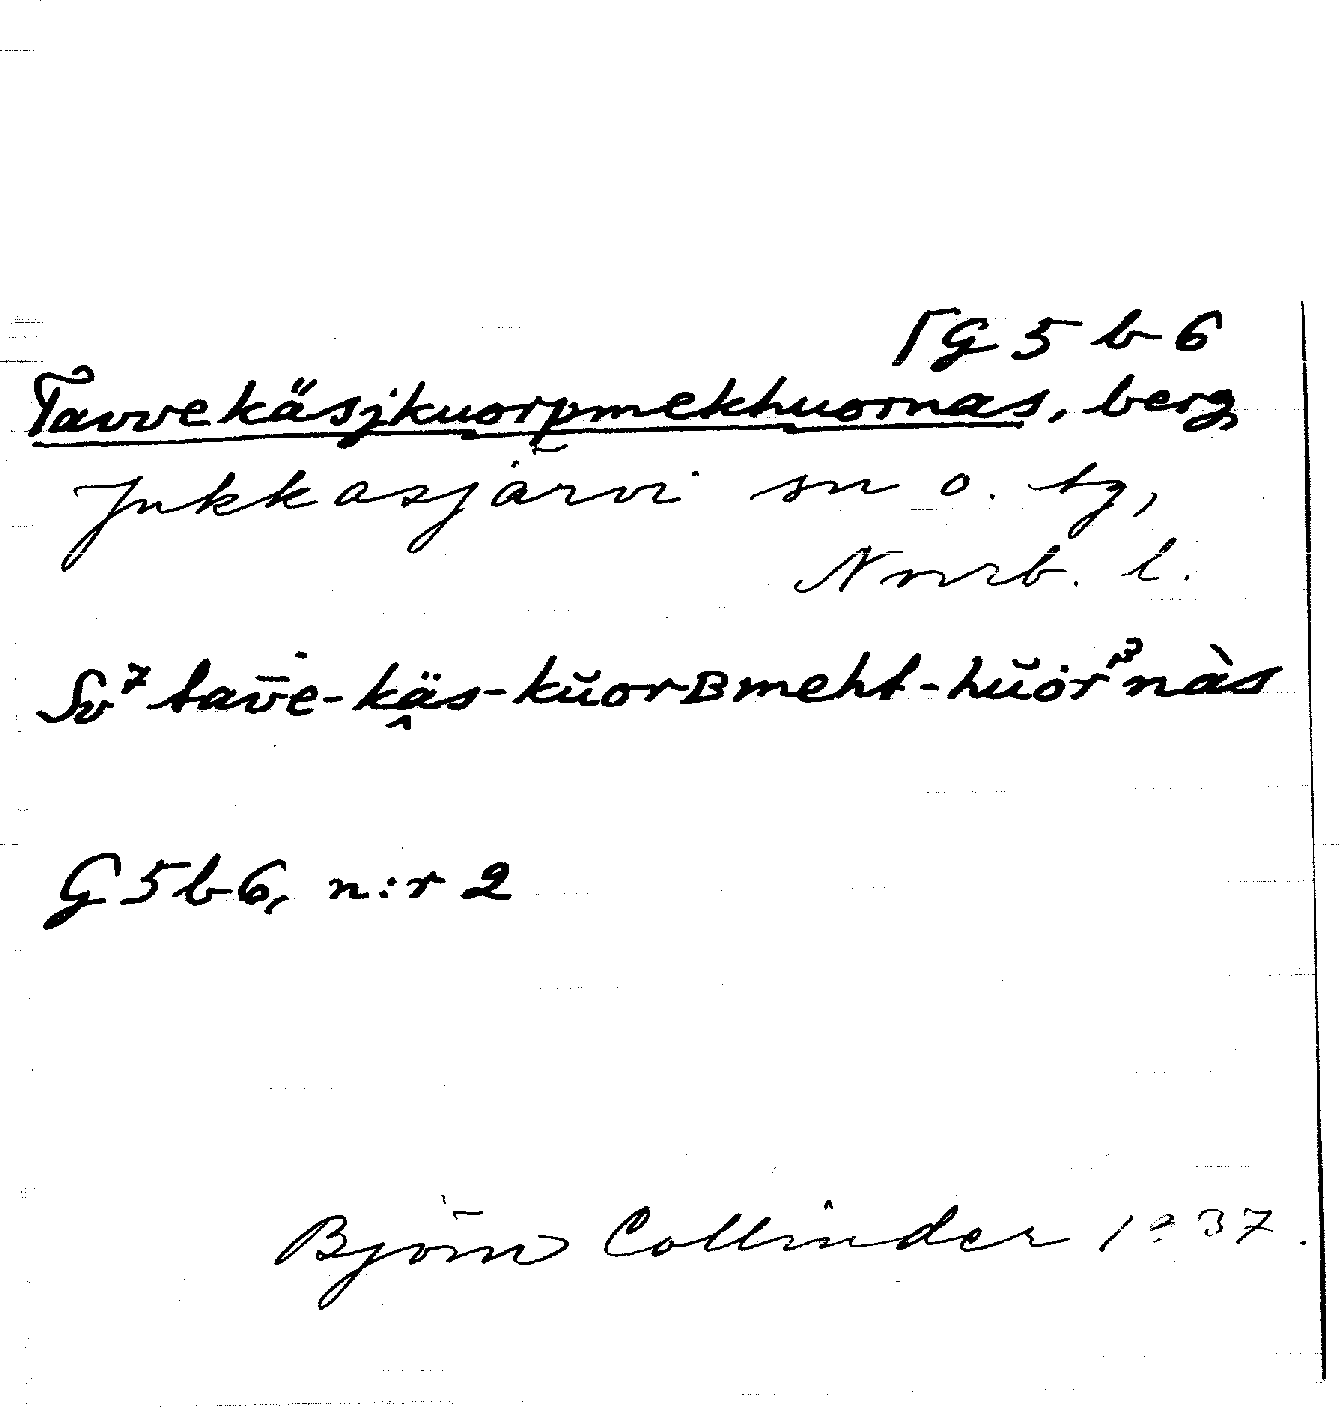 ⌈G 5 b 6
Tavvekäsjkuorpmekhuornas, berg,
Jukkasjärvi sn o. tg,
Norrb. l.
Sv⁷ tav̄e-kä̭s-kŭorʙmeht-hŭȯrᵌnàs
G 5 b 6, n:r 2
Björn Collinder 1937.